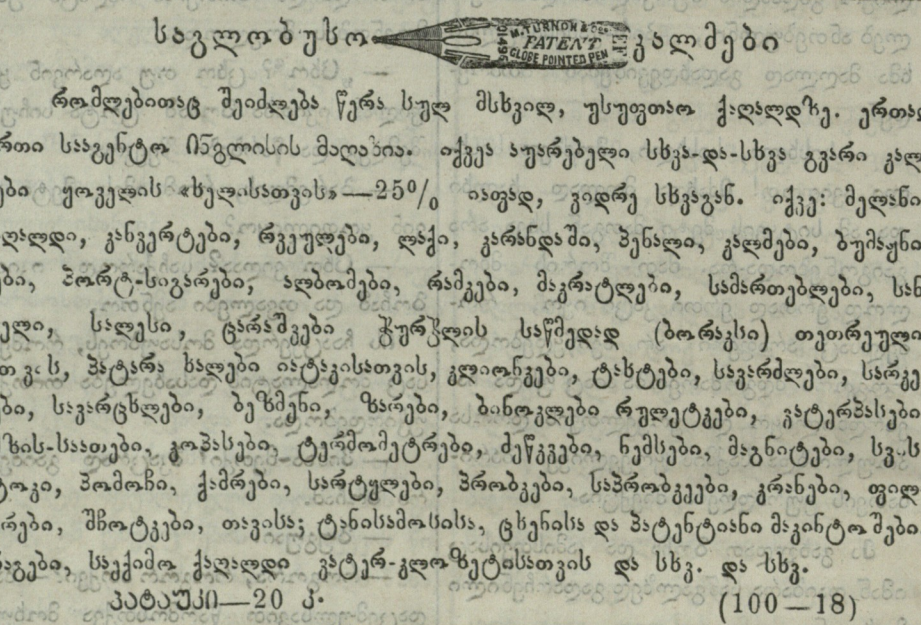 საგლობუსო M. TURNOR & Co. PATENT GLOBE POINTED PEN კალმები
რომლებითაც შეიძლება წერა სულ მსხვილ, უსუფთაო ქაღალდზე. ერთად
რთი სააგენტო ინგლისის მაღაზია. იქვეა აუარებელი სხვა-და-სხვა გვარი კალ
ები ყოველის «ხელისათვის»—25% იაფად, ვიდრე სხვაგან. იქვე: მელანი
ღალდი, კანვერტები, რვეულები, ლაქი, კარანდაში, პენალი, კალმები, ბუმაჟნი
ები, პორტ-სიგარები, ალბომები, რამკები, მაკრატლები, სამართებლები, სან
ელი, სალესი, ცარაშვები ჭურჭლის საწმედად (ბორაკსი) თეთრეული
პატარა ხალები იატაკისათვის, კლიონკები, ტახტები, სავარძლები, სარკე
ბი, სავარცხლები, ბეზმენი, ზარები, ბინოკლები რულეტკები, ვატერპასები
ზის-საათები, კოპასები, ტერმომეტრები, ძეწკვები, ნემსები, მაგნიტები,
ტოკი, პომოჩი, ქამრები, სარტყლები, პრობკები, საპრობკეები, კრანები, ფილ
რები, შჩოტკები, თავისა; ტანისამოსისა, ცხენისა და პატენტიანი მაკინტოშები
აგები, საექიმო ქაღალდი ვატერ-კლოზეტისათვის და სხვ. და სხვ.
პატაუკი—20 კ. (100—18)